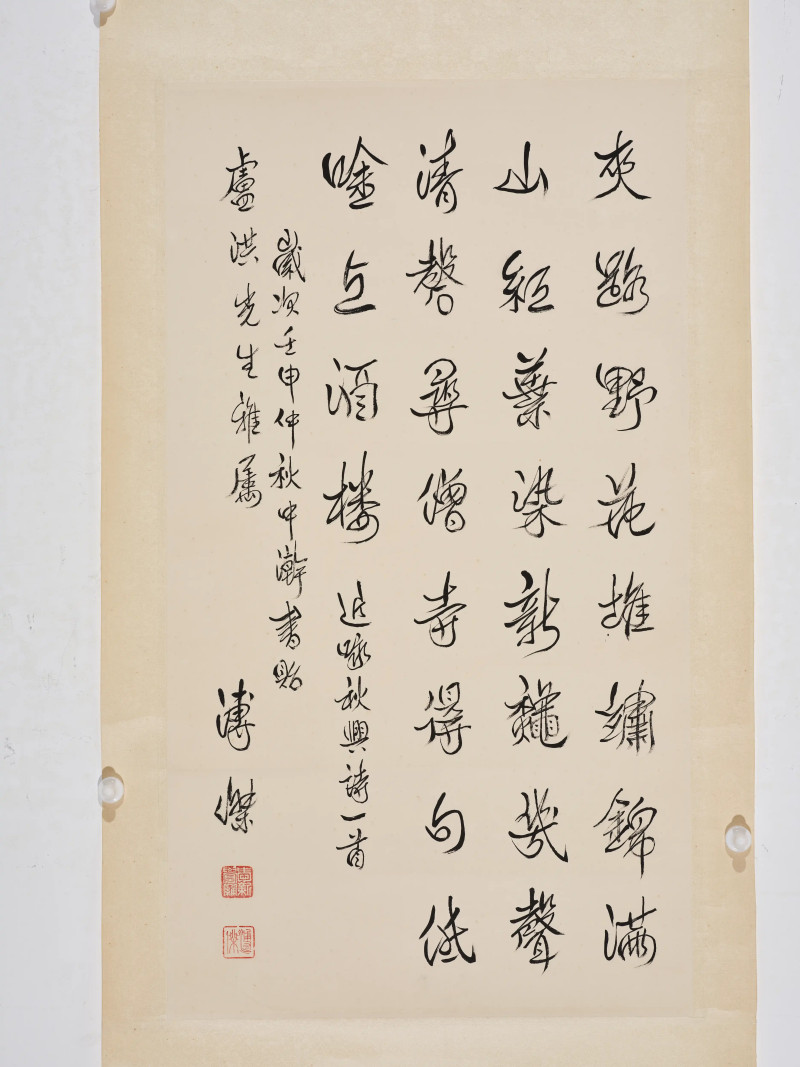 夾路野花堆繡錦滿
山紅葉染新龝幾聲
清磬尋僧寺得句低
唫上酒楼 近咏秋興詩一首
歲次壬申仲秋中澣書貽
盧洪先生雅属 溥傑